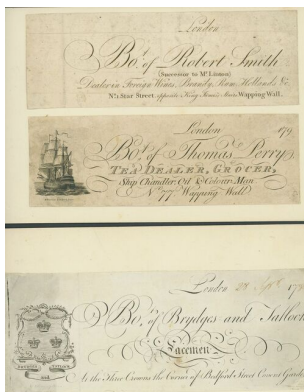 London
Bot. of Robert Smith
(Successor to Mr. Linton)
Dealer in Foreign Wines, Brandy, Rum, Hollands &c.
Star Street opposite King James's Stairs Wapping Wall.
London 179
Bot. of Thomas Perry
TEA DEALER, GROCER,
Ship Chandler, Oil & Colour Man
No. 77 Wapping Wall
London 179
Bot. of Brydges and
Lacemen
At the Three Crowns the Corner of Bedford Street Covent Garden